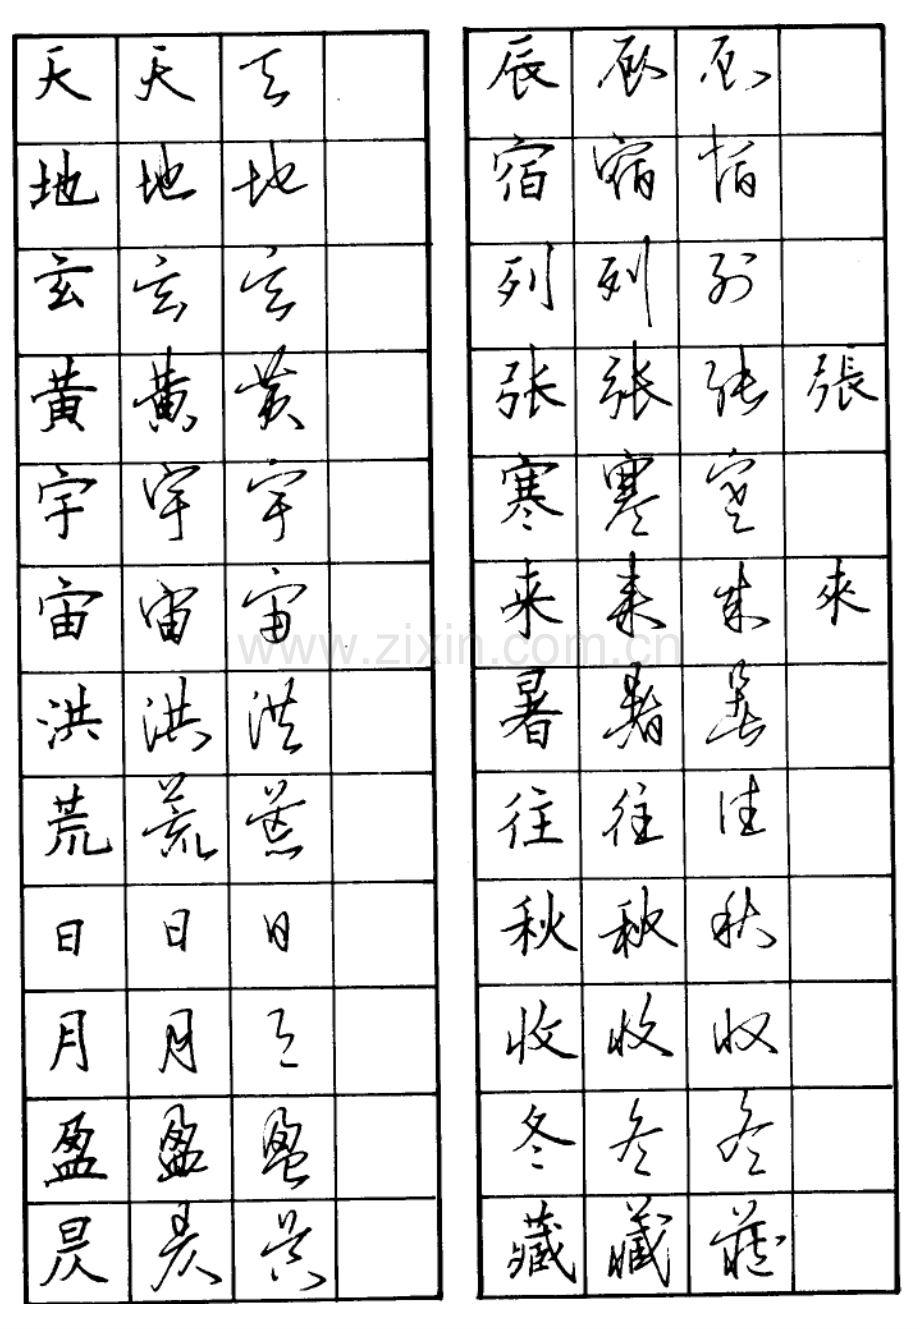 天 天 天
地 地 地
玄 玄 玄
黄 黄 黄
宇 宇 宇
宙 宙 宙
洪 洪 洪
荒 荒 荒
日 日 日
月 月 月
盈 盈 盈
昃 昃 昃
辰 辰 辰
宿 宿 宿
列 列 列
张 张 张 張
寒 寒 寒
来 来 来 來
暑 暑 暑
往 往 往
秋 秋 秋
收 收 收
冬 冬 冬
藏 藏 藏
www.zixin.com.cn